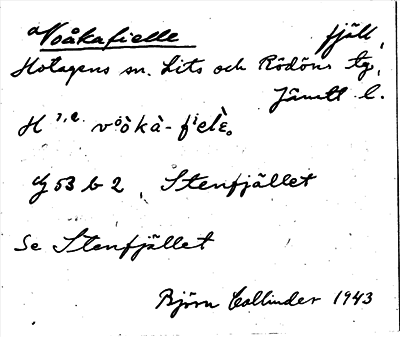 Voåkafielle fjäll,
Hotagens sn. Lits och Rödöns tg,
Jämtl l.
H 1,2 vòökà-fielè.
53 b 2, Stenfjället
Se Stenfjället
Björn Collinder 1943